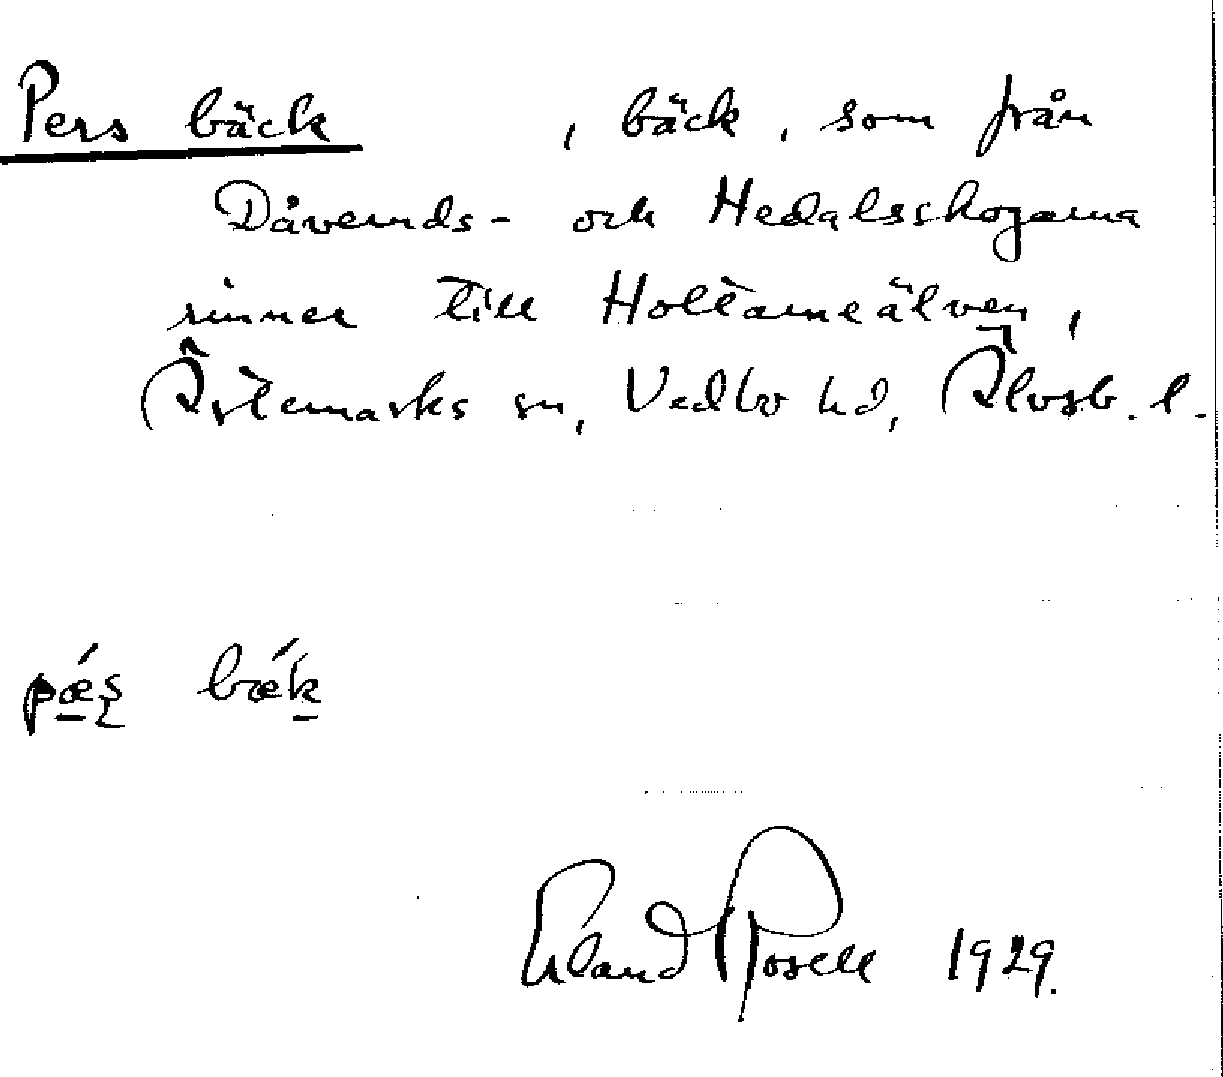 Pers bäck , bäck, som från
Dåveruds- och Hedalsskogarna
rinner till Holtaneälven,
Ärtemarks sn, Vedbo hd, Älvsb. l.
bǽk
Erland Rosell 1929.